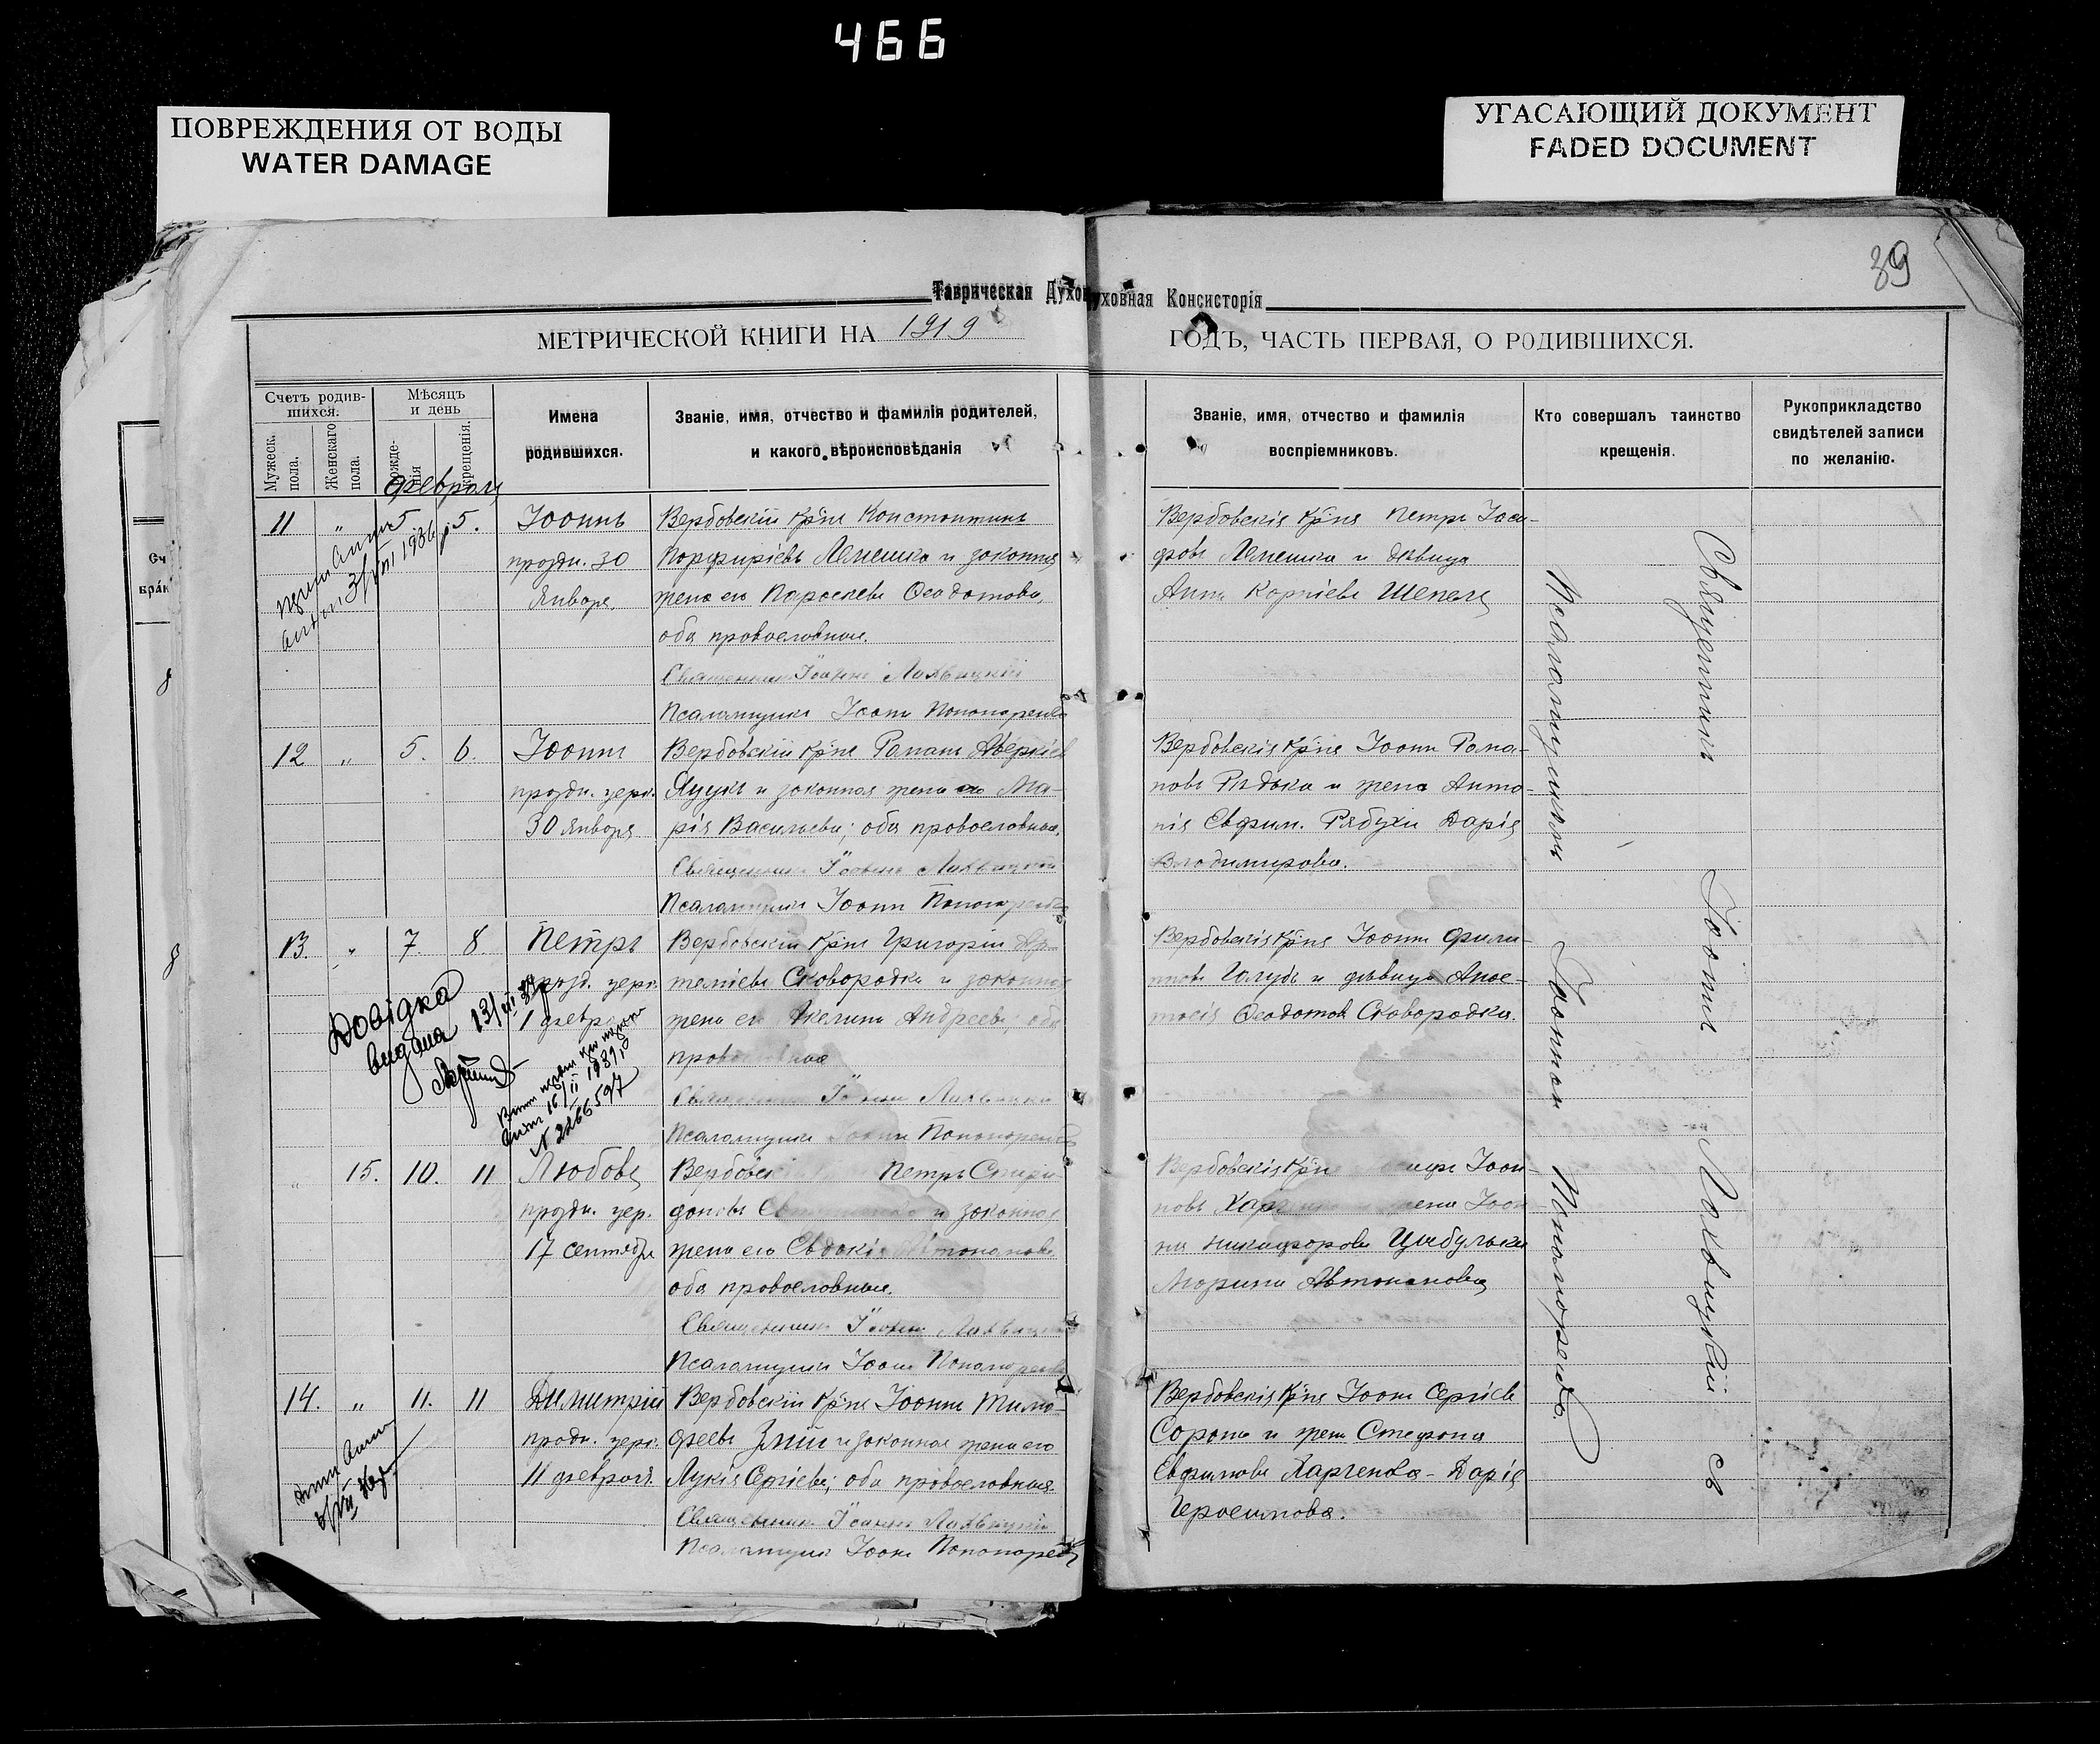 466
ПОВРЕЖДЕНИЯ ОТ ВОДЫ
WATER DAMAGE
УГАСАЮЩИЙ ДОКУМЕНТ
FADED DOCUMENT
39
Таврическая Духовная Консисторія
МЕТРИЧЕСКОЙ КНИГИ НА 1919 ГОДЪ, ЧАСТЬ ПЕРВАЯ, О РОДИВШИХСЯ.
Счетъ родив-
шихся.
Мужеск. пола.
Женскаго пола.
Мѣсяцъ
и день
крещенія.
Имена
родившихся.
Званіе, имя, отчество и фамилія родителей,
и какого вѣроисповѣданія
Званіе, имя, отчество и фамилія
воспріемниковъ.
Кто совершалъ таинство
крещенія.
Рукоприкладство
свидѣтелей записи
по желанію.
февраля
11 " 5 5. Іоаннъ
праздн. 30
Января
Вербовскій кр-нъ Константинъ
Порфиріевъ Лемешко и законная
жена его Параскева Феодотова,
оба православные.
Священникъ Іоаннъ Лохвицкій
Псаломщикъ Іоаннъ Пономаренко
Вербовскія кр-не Петръ Іоси-
фовъ Лемешко и дѣвица
Анна Корніева Шепель
3/VII 1936
12 " 5. 6. Іоаннъ
праздн. церк.
30 Января
Вербовскій кр-нъ Романъ Аверкіевъ
Яцукъ и законная жена его Ма-
рія Васильева; оба православные.
Священникъ Іоаннъ Лохвицкій
Псаломщикъ Іоаннъ Пономаренко
Вербовскія кр-не Іоаннъ Рома-
новъ Рѣдька и жена Анто-
нія Евфим. Рябухи Дарія
Владимирова.
13. " 7. 8. Петръ
празд. церк.
1 февр
Вербовскій кр-нъ Григорій
Сковородка и законная
жена его Акелина Андреева; оба
православные
Псаломщикъ Іоаннъ Пономаренко
Вербовскія кр-не Іоаннъ Филип-
повъ Голубъ и дѣвица Анас-
тасія Феодотова Сковородка.
Довідка
видана 13/VII
16/II 1931
N 2266597
" 15. 10. 11 Любовь
праздн. цер.
17 сентября
Петръ Спири-
доновъ и законная
жена его Евдокія Автономова
оба православные.
Священникъ Іоаннъ Лохвицкій
Псаломщикъ Іоаннъ Пономаренко
Вербовскія кр-не Іоан-
новъ жена Іоан
на Никифорова Цыбулька
Марина Автономова
14. " 11. 11 Димитрій
празд. церк.
11 февраля.
Вербовскій кр-нъ Іоаннъ Тимо-
феевъ Змій и законная жена его
Лукія Сергіева; оба православные
Священникъ Іоаннъ Лохвицкій
Псаломщикъ Іоаннъ Пономаренко
Вербовскія кр-не Іоаннъ Сергіевъ
Сорока и жена Стефана
Евфимова Харченко - Дарія
Герасимова.
Священникъ Іоаннъ Лохвицкій съ
Псаломщикомъ Іоанномъ Пономаренко.